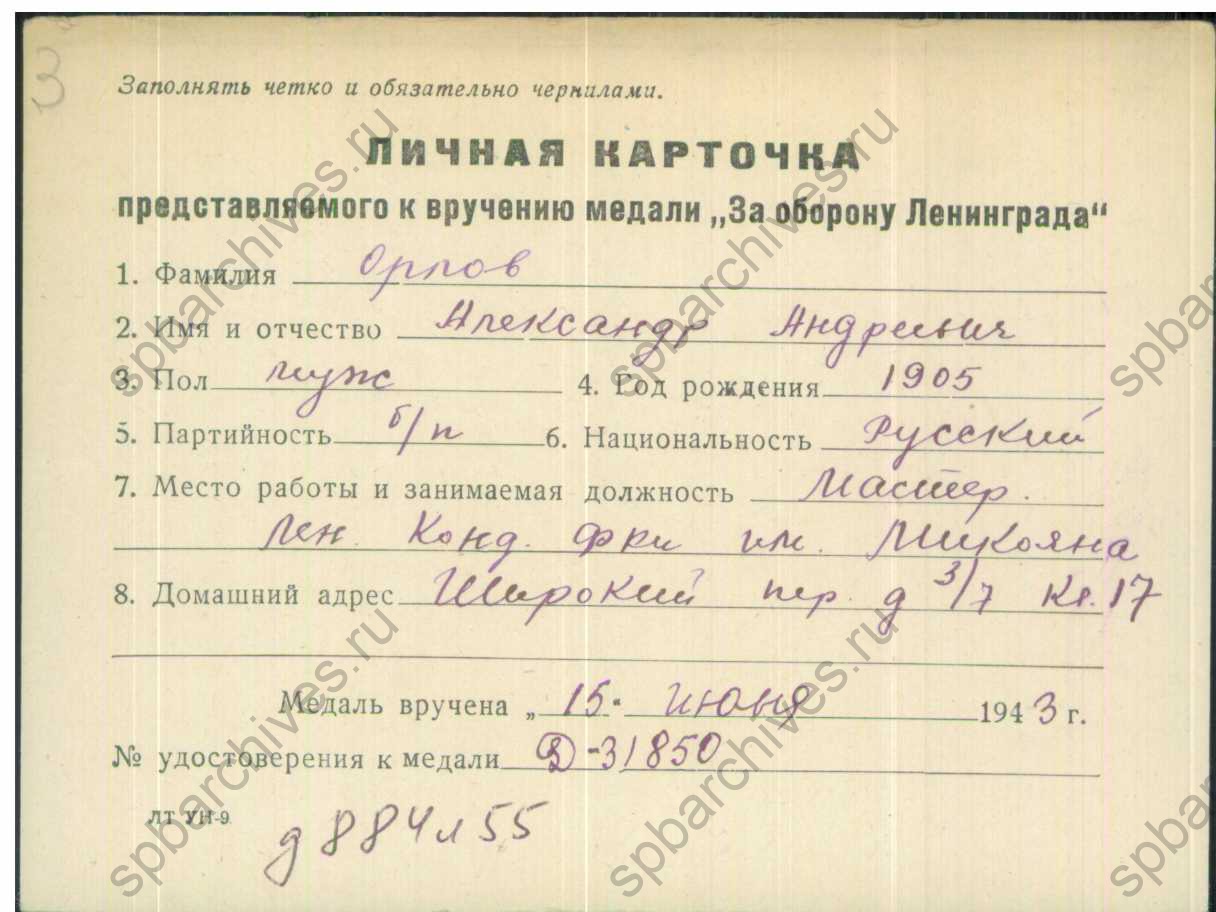 3
Заполнять четко и обязательно чернилами.
ЛИЧНАЯ КАРТОЧКА
представляемого к вручению медали „За оборону Ленинграда“
1. Фамилия Орлов
2. Имя и отчество Александр Андреевич
3. Пол муж 4. Год рождения 1905
5. Партийность б/п 6. Национальность Русский
7. Место работы и занимаемая должность Мастер.
Лен. Конд. Фки им. Микояна
8. Домашний адрес Широкий пер. д 3/7 Кв. 17
Медаль вручена „15“ июня 1943 г.
№ удостоверения к медали Д-31850
ЛТ УН-9
д 884 л 55
spbarchives.ru
spbarchives.ru
spbarchives.ru
spbarchives.ru